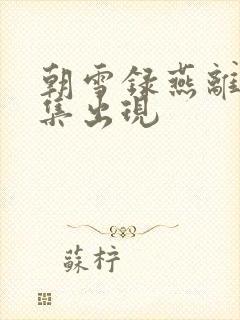 朝雪録燕離
集出現
蘇柠